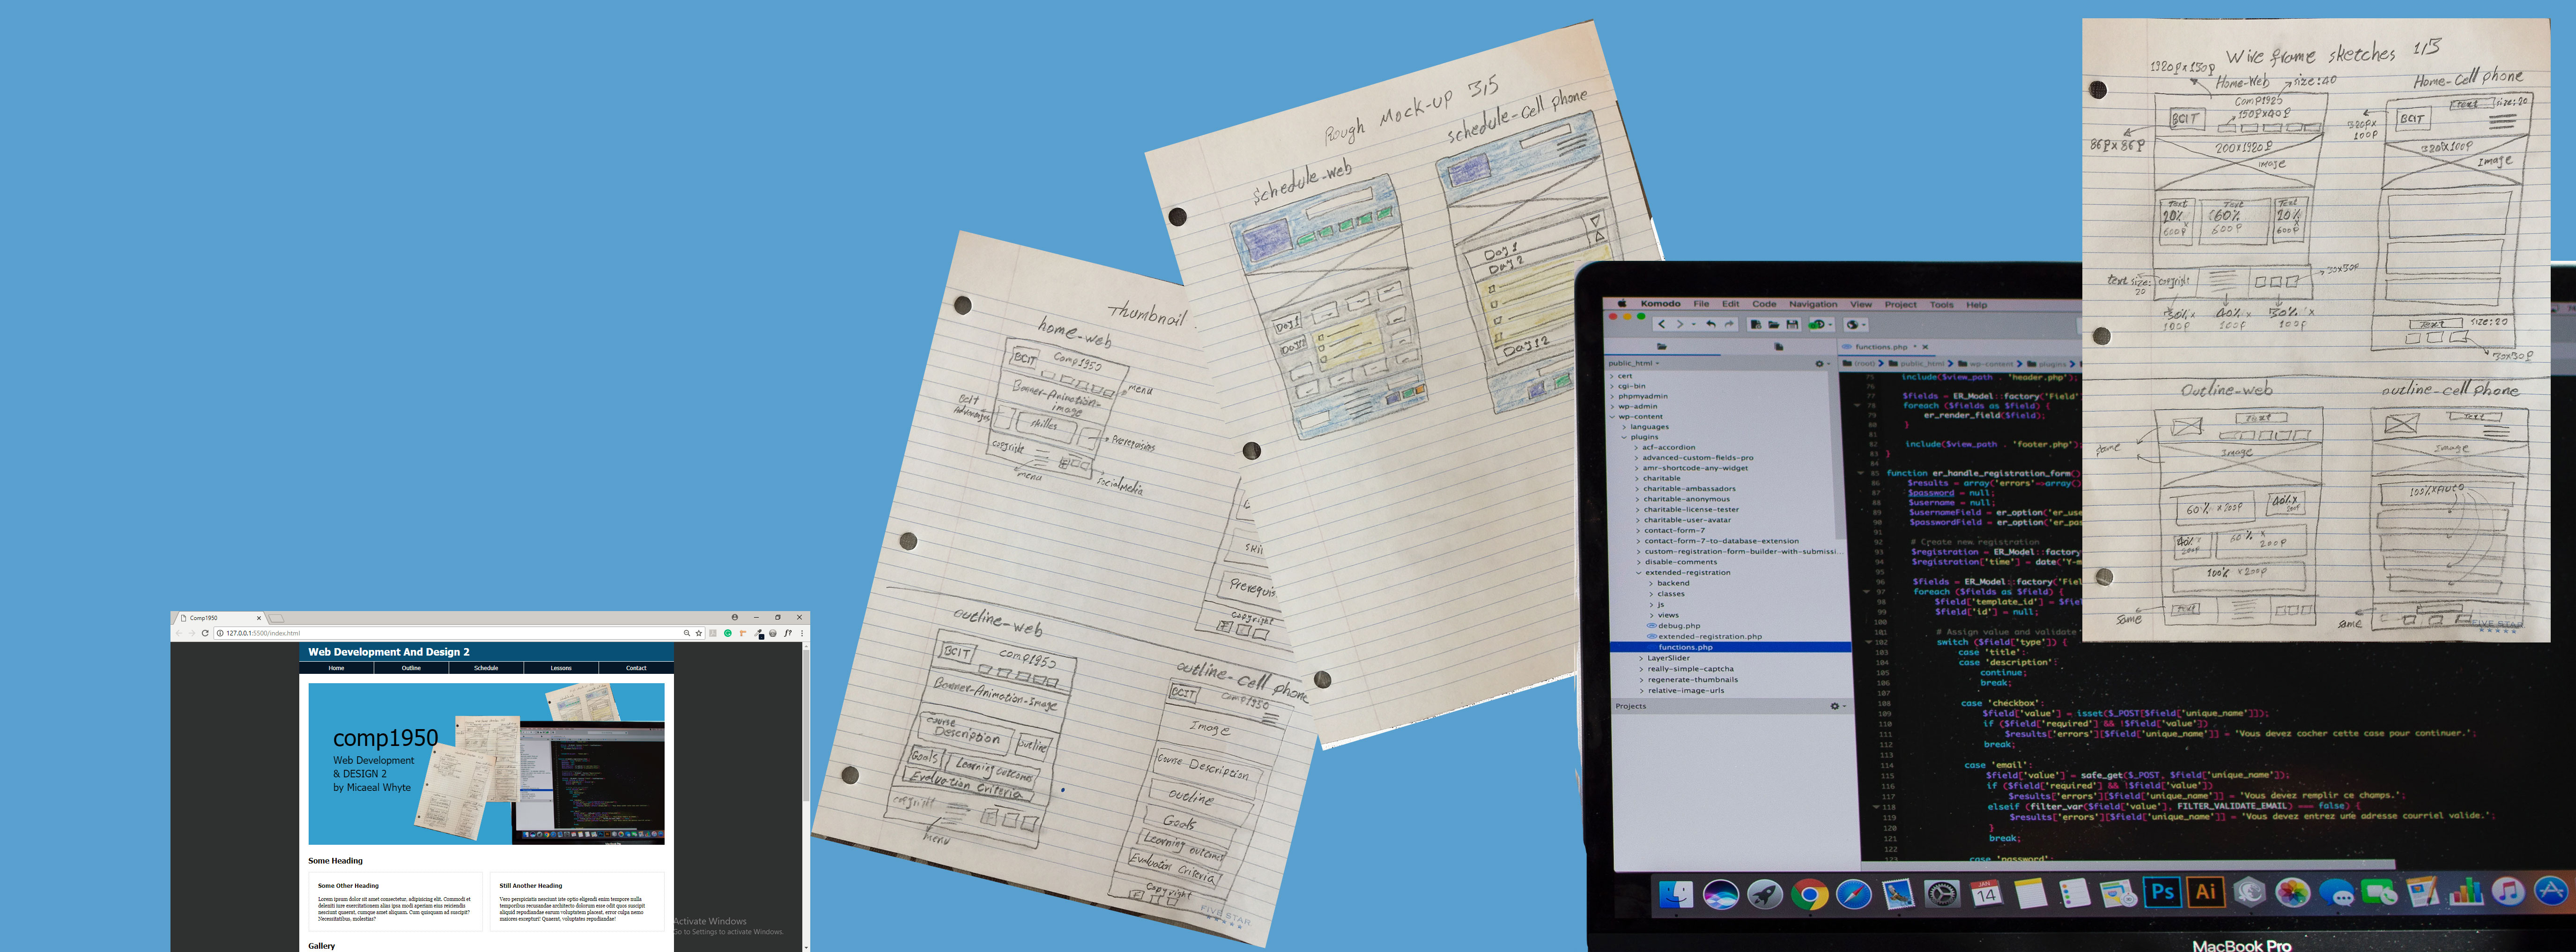 Comp1950
127.0.0.1:5500/index.html
Web Development And Design 2
Home Outline Schedule Lessons Contact
comp1950
Web Development
& DESIGN 2
by Micaeal Whyte
Some Heading
Some Other Heading
Lorem ipsum dolor sit amet consectetur, adipisicing elit. Commodi et
deleniti iure exercitationem alias ipsa modi aperiam eius reiciendis
nesciunt quaerat, cumque amet aliquam. Cum quisquam ad suscipit?
Necessitatibus, molestias?
Still Another Heading
Vero perspiciatis nesciunt iste optio eligendi enim tempore nulla
temporibus recusandae architecto dolorum esse odit quos suscipit
aliquid repudiandae earum voluptatem placeat, error culpa nemo
maiores excepturi! Quaerat, voluptates repudiandae!
Gallery
Activate Windows
Go to Settings to activate Windows.
Thumbnail
home-web
BCIT Comp1950
menu
Banner-Animotion-
image
skilles
Prerequisins
copyright
menu
socialmedia
outline-web
BCIT comp1950
Banner-Animotion-Image
course
Description
outline
Goals
Learning outcome
Evaluation criteria
copyright
menu
outline-cell phone
BCIT comp1950
Image
Course-Description
outline
Goals
Learning outcome
Evaluation Criteria
Copyright
FIVE STAR
Prerequis
copyright
Rough Mock-up 3/5
schedule-web
Day1
Day12
schedule-cell phone
Day 1
Day 2
Day12
Komodo File Edit Code Navigation View Project Tools Help
functions.php
public_html
(root) public_html wp-content plugins
cert
cgi-bin
phpmyadmin
wp-admin
wp-content
languages
plugins
acf-accordion
advanced-custom-fields-pro
amr-shortcode-any-widget
charitable
charitable-ambassadors
charitable-anonymous
charitable-license-tester
charitable-user-avatar
contact-form-7
contact-form-7-to-database-extension
custom-registration-form-builder-with-submissi...
disable-comments
extended-registration
backend
classes
js
views
debug.php
extended-registration.php
functions.php
LayerSlider
really-simple-captcha
regenerate-thumbnails
relative-image-urls
Projects
75 include($view_path . 'header.php');
76
77 $fields = ER_Model::factory('Field'
78 foreach ($fields as $field) {
79 er_render_field($field);
80 }
81
82 include($view_path . 'footer.php');
83 }
84
85 function er_handle_registration_form()
86 $results = array('errors'=>array()
87 $password = null;
88 $username = null;
89 $usernameField = er_option('er_use
90 $passwordField = er_option('er_pas
91
92 # Create new registration
93 $registration = ER_Model::factory
94 $registration['time'] = date('Y-m
95
96 $fields = ER_Model::factory('Fiel
97 foreach ($fields as $field) {
98 $field['template_id'] = $fie
99 $field['id'] = null;
100
101 # Assign value and validate
102 switch ($field['type']) {
103 case 'title':
104 case 'description':
105 continue;
106 break;
107
108 case 'checkbox':
109 $field['value'] = isset($_POST[$field['unique_name']]);
110 if ($field['required'] && !$field['value'])
111 $results['errors'][$field['unique_name']] = 'Vous devez cocher cette case pour continuer.';
112 break;
113
114 case 'email':
115 $field['value'] = safe_get($_POST, $field['unique_name']);
116 if ($field['required'] && !$field['value'])
117 $results['errors'][$field['unique_name']] = 'Vous devez remplir ce champs.';
118 elseif (filter_var($field['value'], FILTER_VALIDATE_EMAIL) === false) {
119 $results['errors'][$field['unique_name']] = 'Vous devez entrez une adresse courriel valide.';
120 }
121 break;
122
123 case 'password':
JAN
14
Ps
Ai
MacBook Pro
Wire frame sketches 1/5
1920p x 150p
Home-Web
size:40
Comp1925
150px40p
BCIT
86p x 86p
200x1920p
image
Text
20%
x
600p
Text
60%
600p
Text
20%
x
600p
text size:
20
copyright
30x30p
30% x
100p
40% x
100p
30% x
100p
Home-cell phone
Text size:20
BCIT
320px
100p
320x100p
Image
Text size:20
30x30p
Outline-web
Text
same
Image
60% x 200p
40% x
200p
40% x
200p
60% x
200p
100% x200p
text
same
outline-cell phone
Text
Image
100% x Auto
same
FIVE STAR